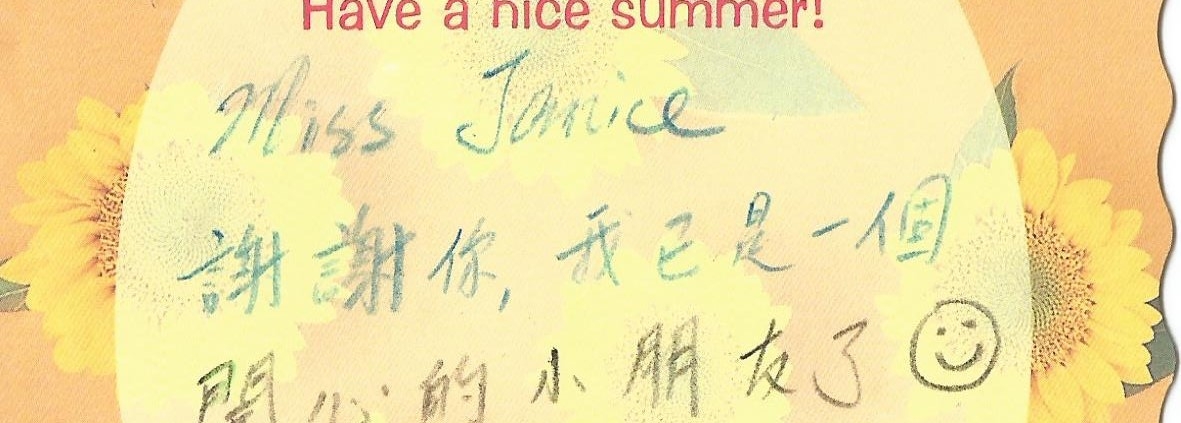 Have a nice summer!
Miss Janice
謝謝你，我已是一個
開心的小朋友了